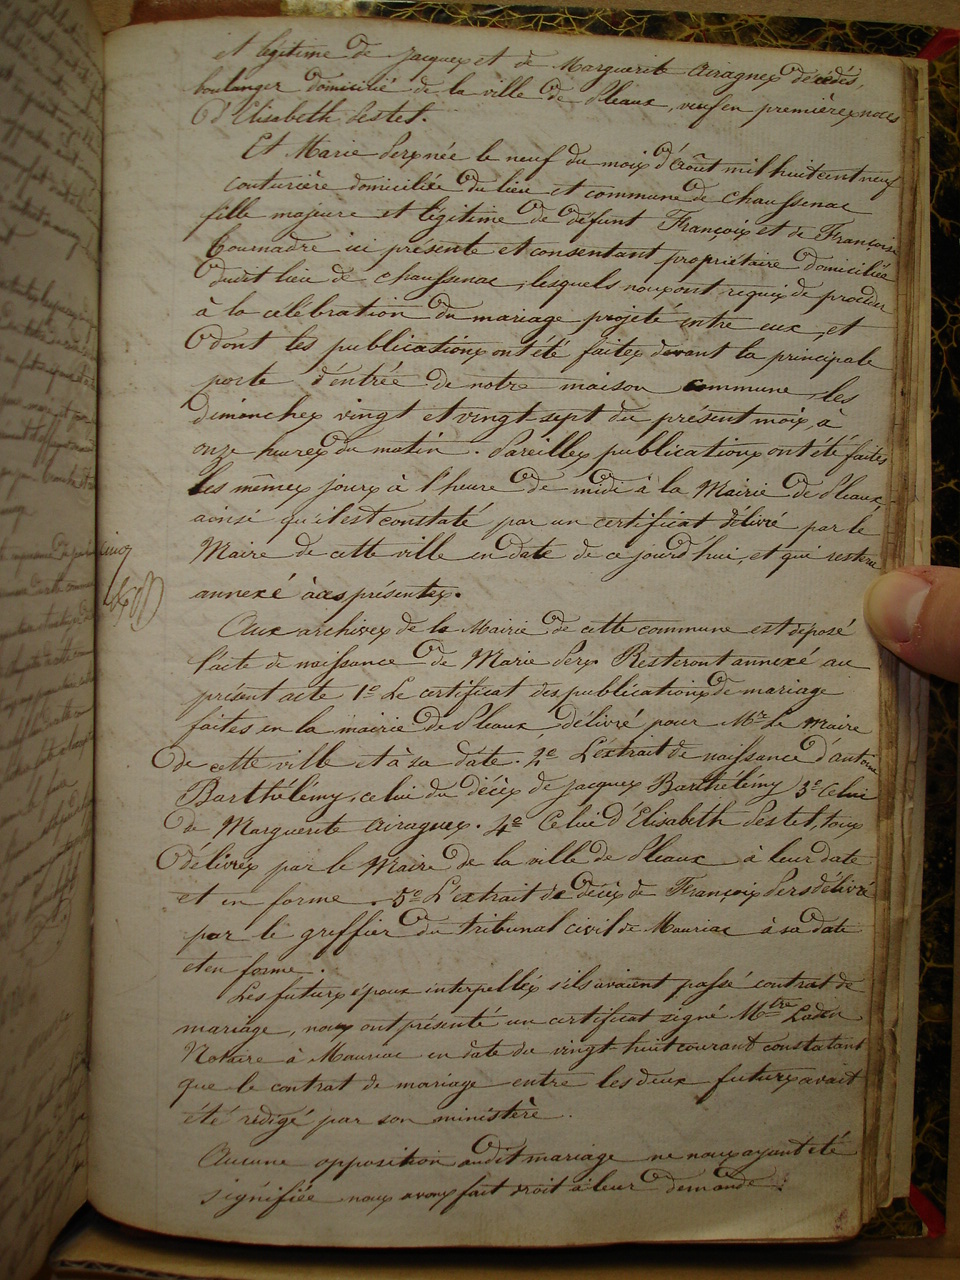 et légitime de Jacques et de Marguerite Airagnes décédés,
boulanger domicilié de la ville de Pleaux, veuf en premières noces
D'Elisabeth Lestel.
Et Marie Sers née le neuf du mois d'août mil huit cent neuf
couturière domiciliée du lieu et commune de Chaussenac
fille majeure et légitime de défunt François et de Françoise
Bournadre ici présente et consentant propriétaire domiciliée
dudit lieu de Chaussenac, lesquels nous ont requis de procéder
à la célébration du mariage projeté entre eux, et
dont les publications ont été faites devant la principale
porte d'entrée de notre maison commune, les
dimanches vingt et vingt-sept du présent mois, à
onze heures du matin. Pareilles publications ont été faites
les mêmes jours à l'heure de midi à la Mairie de Pleaux
ainsi qu'il est constaté par un certificat délivré par le
Maire de cette ville en date de ce jourd'hui, et qui restera
annexé à ces présentes.
Aux archives de la Mairie de cette commune est déposé
l'acte de naissance de Marie Sers. Resteront annexé au
présent acte 1º Le certificat des publications de mariage
faites en la mairie de Pleaux délivré pour Mr Le Maire
de cette ville et à sa date. 2º L'extrait de naissance d'antoine
Barthélémy, celui du décès de Jacques Barthélémy 3º Celui
de Marguerite Airagnes. 4º Celui d'Elisabeth Lestel, tous
délivrés par le Maire de la ville de Pleaux à leur date
et en forme. 5º L'extrait de décès de François Sers délivré
par le greffier du tribunal civil de Mauriac à sa date
et en forme.
Les futurs époux interpellés s'ils avaient passé contrat de
mariage, nous ont présenté un certificat signé Mtre
Notaire à Mauriac en date du vingt-huit courant constatant
que le contrat de mariage entre les deux futurs avait
été rédigé par son ministère.
Aucune opposition audit mariage ne nous ayant été
signifiée nous avons fait droit à leur demande.